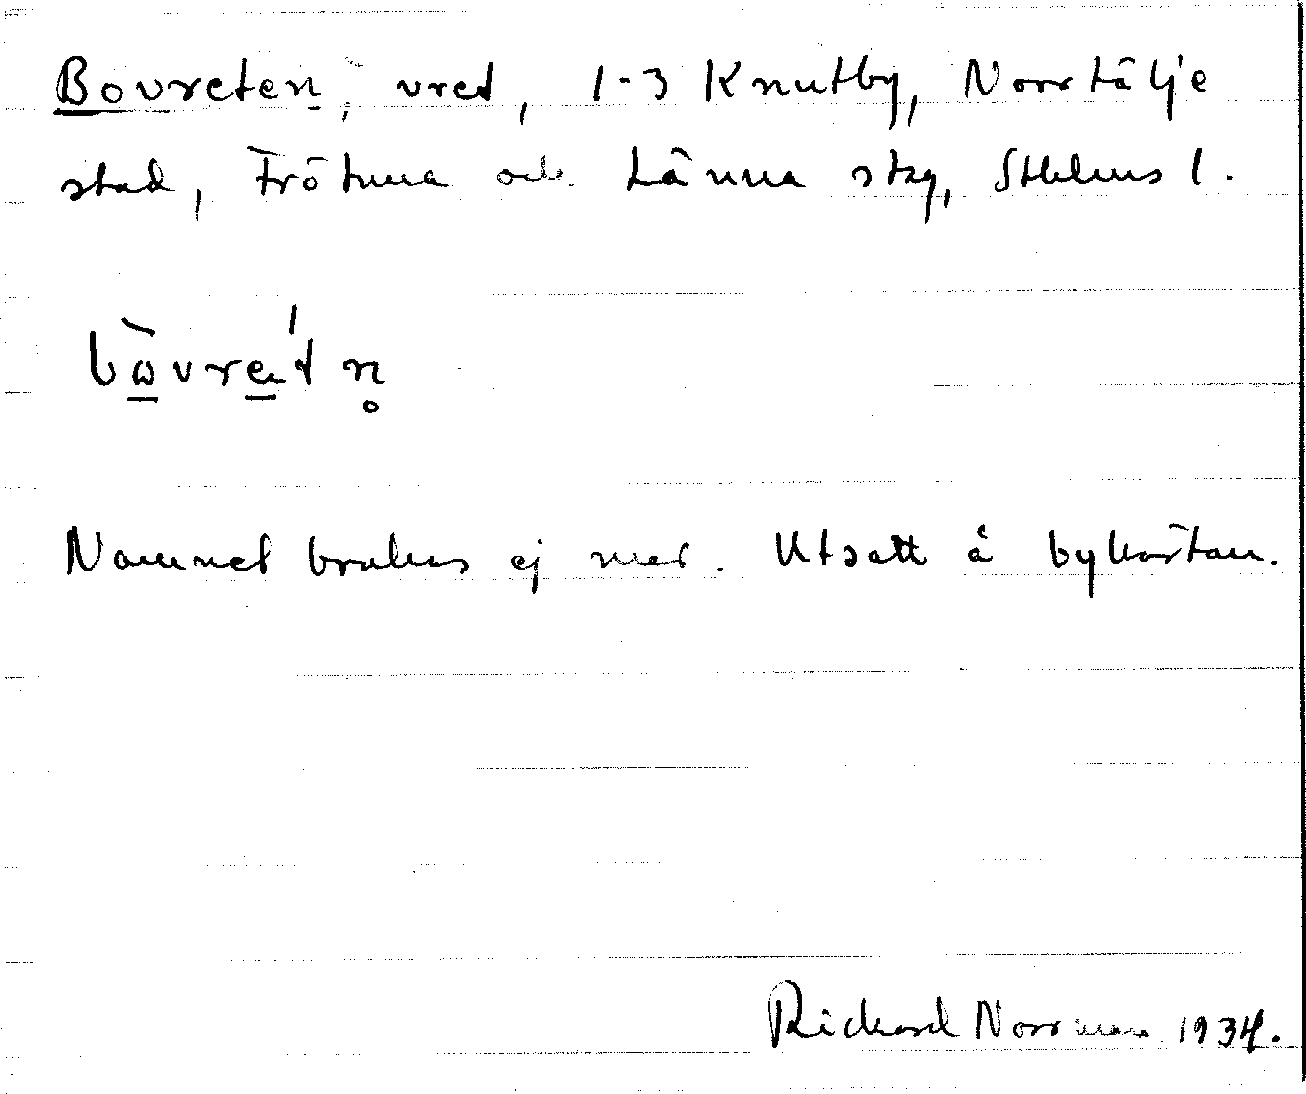 Bovreten, vret, 1-3 Knutby, Norrtälje
stad, Frötuna och Länna skg, Sthlms l.
Namnet brukas ej mer. Utsatt å bykartan.
Rickard Norrman 1934.